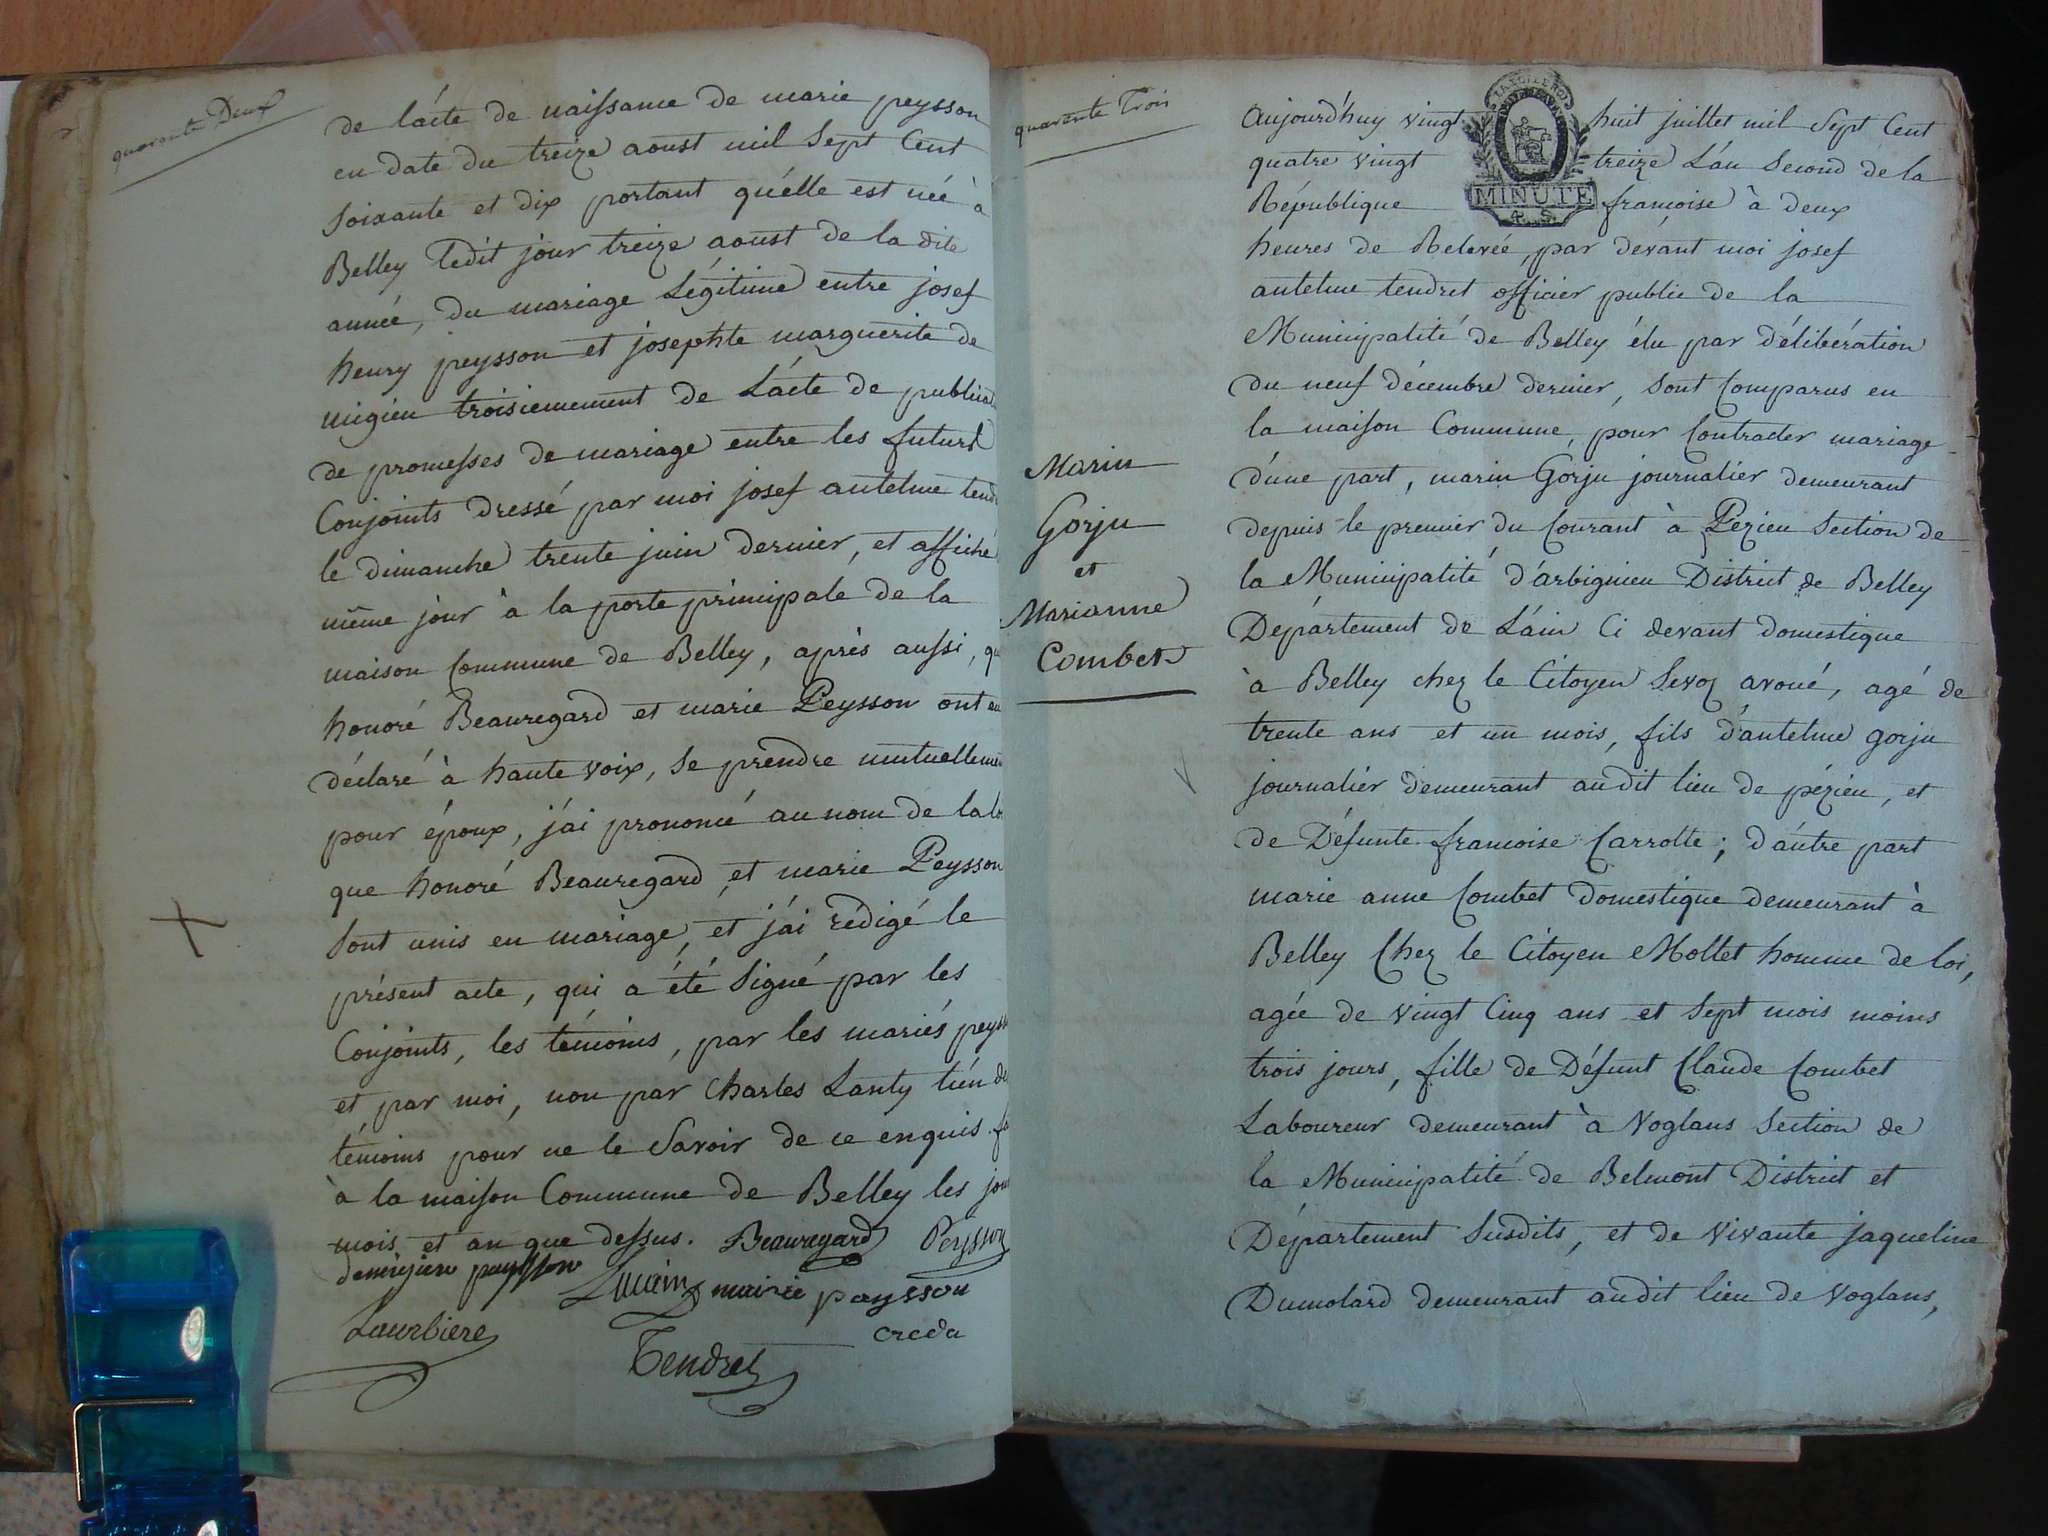 quarante Deux
de l'acte de naissance de marie peysson
en date du treize aoust mil Sept Cent
soixante et dix portant qu'elle est née à
Belley ledit jour treize aoust de la dite
année, du mariage Légitime entre josef
henry peysson et josephte marguerite de
migieu troisiemement de L'acte de publica
de promesses de mariage entre les futurs
Conjoints dressé par moi josef antelme tend
le dimanche trente juin dernier, et affiché
même jour à la porte principale de la
maison Commune de Belley, après aussi, qu
honoré Beauregard et marie Peysson ont eu
déclaré à haute voix, se prendre mutuelleme
pour époux, j'ai prononcé au nom de la lo
que honoré Beauregard et marie Peysson
sont unis en mariage, et j'ai rédigé le
présent acte, qui a été Signé par les
Conjoints, les témoins, par les mariés peyss
et par moi, non par Charles Lanty l'un de
témoins pour ne le Savoir de ce enquis. fa
à la maison Commune de Belley les jou
mois et an que dessus. Beauregard Peysson
demigieu peysson
marie paysson
Laurbiere
Tendret
creda
quarente Trois
STAECLEROI
MINUTE
4. S.
Aujourd'huy vingt huit juillet mil Sept Cent
quatre vingt treize L'an Second de la
République françoise à deux
heures de Relevée, par devant moi josef
antelme tendret officier public de la
Municipalité de Belley élu par délibération
du neuf décembre dernier, sont Comparus en
la maison Commune, pour Contracter mariage
d'une part, marin Gorju journalier demeurant
depuis le premier du Courant à Pezieu Section de
la Municipalité d'arbignieu District de Belley
Département de L'ain Ci devant domestique
à Belley chez le Citoyen Sevoz avoué, agé de
trente ans et un mois, fils d'antelme gorju
journalier demeurant audit lieu de pézieu, et
de Défunte francoise Carrotte; d'autre part
marie anne Combet Domestique demeurant à
Belley Chez le Citoyen Mollet homme de loi,
agée de vingt Cinq ans et Sept mois moins
trois jours, fille de Défunt Claude Combet
Laboureur demeurant à Voglans Section de
la Municipalité de Belmont District et
Département Susdits, et de vivante jaqueline
Dumolard demeurant audit lieu de Voglans,
Marin
Gorju
et
Marianne
Combet